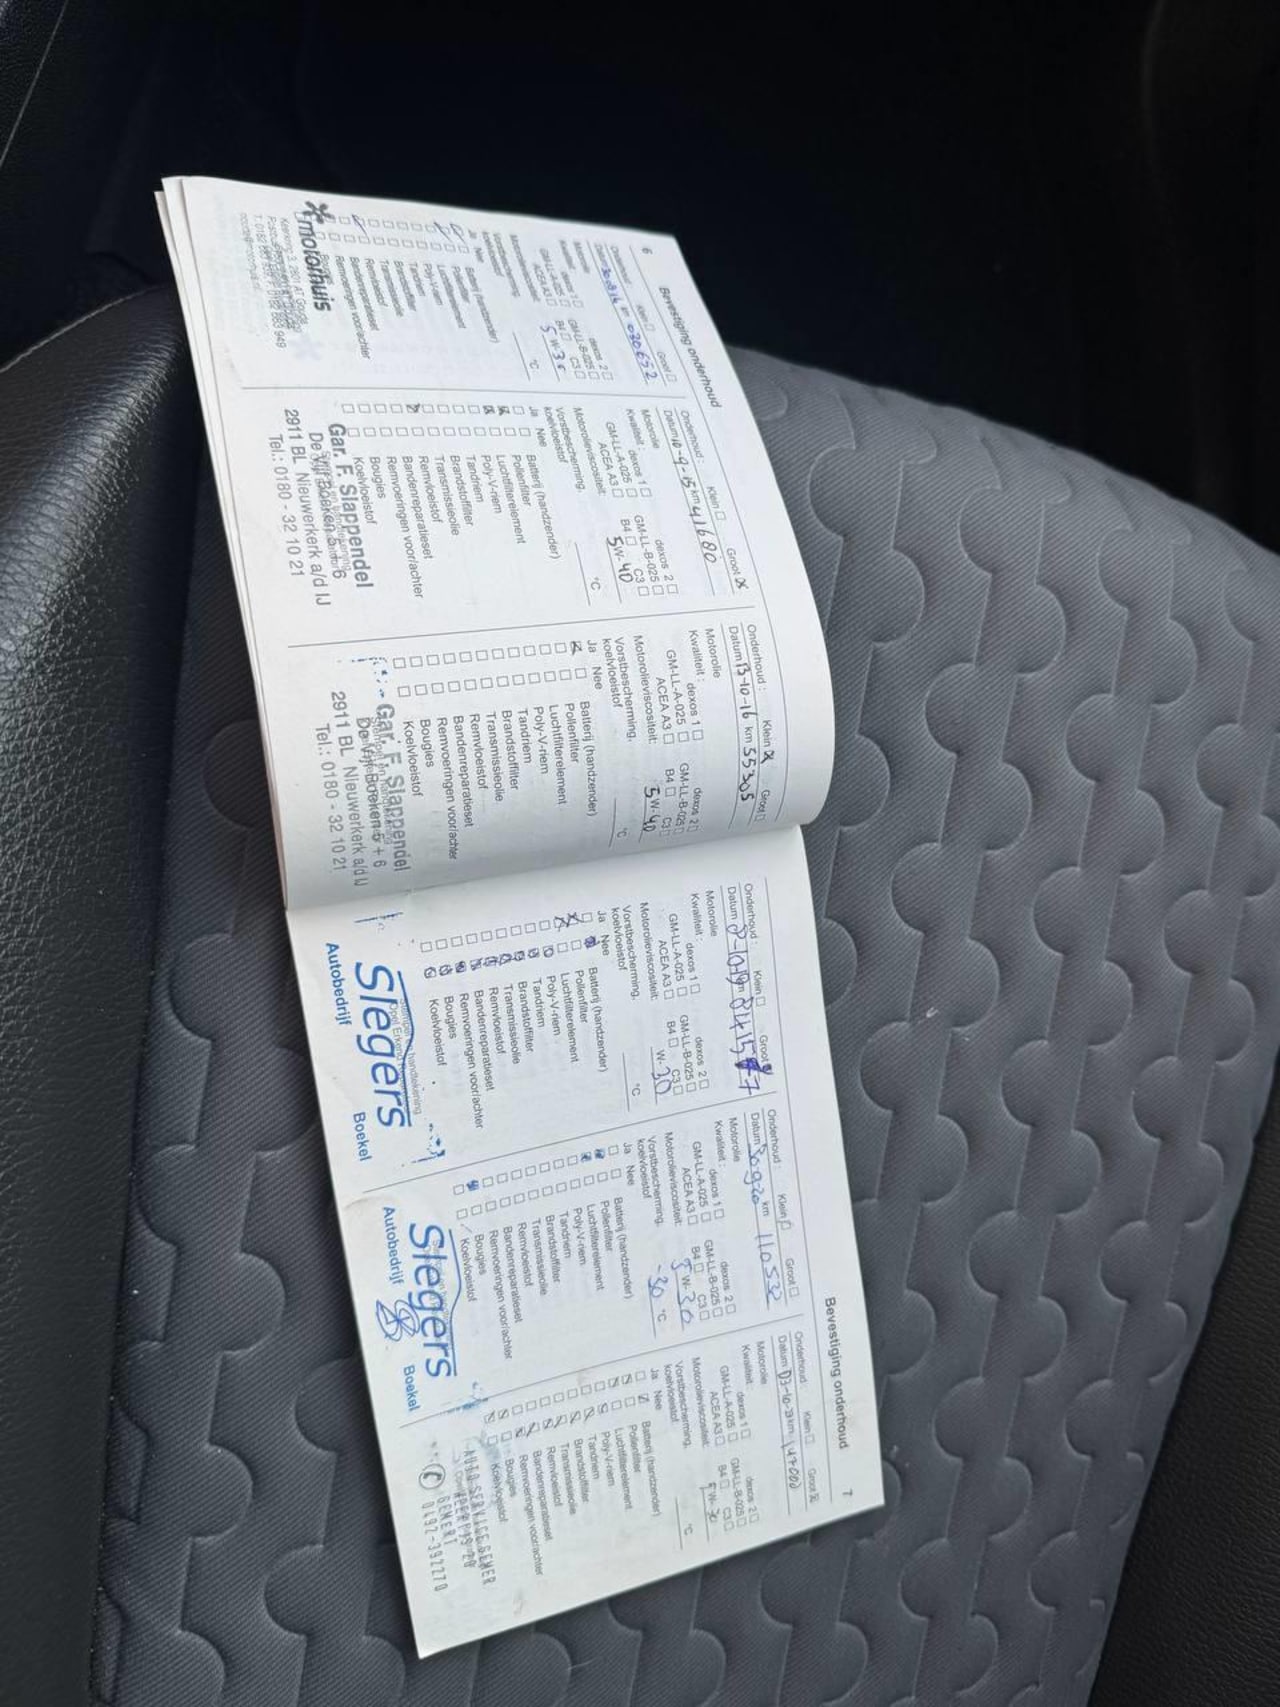 6
Bevestiging onderhoud
Onderhoud : Klein Groot
km 030652
Motorolie
dexos 1 dexos 2
GM-LL-A-025 GM-LL-B-025
ACEA A3 B4 C3
Motorolieviscositeit: 5 W-30
Vorstbescherming,
koelvloeistof °C
Ja Nee
Batterij (handzender)
Pollenfilter
Luchtfilterelement
Poly-V-riem
Tandriem
Brandstoffilter
Transmissieolie
Remvloeistof
Bandenreparatieset
Remvoeringen voor/achter
motorhuis
Onderhoud : Klein Groot
Datum 10-9-15 km 41680
Motorolie
Kwaliteit : dexos 1 dexos 2
GM-LL-A-025 GM-LL-B-025
ACEA A3 B4 C3
Motorolieviscositeit: 5W-40
Vorstbescherming,
koelvloeistof °C
Ja Nee
Batterij (handzender)
Pollenfilter
Luchtfilterelement
Poly-V-riem
Tandriem
Brandstoffilter
Transmissieolie
Remvloeistof
Bandenreparatieset
Remvoeringen voor/achter
Bougies
Koelvloeistof
Gar. F. Slappendel
De Vijf Boeken 5 + 6
2911 BL Nieuwerkerk a/d IJ
Tel.: 0180 - 32 10 21
Onderhoud : Klein Groot
Datum 13-10-16 km 55305
Motorolie
Kwaliteit : dexos 1 dexos 2
GM-LL-A-025 GM-LL-B-025
ACEA A3 B4 C3
Motorolieviscositeit: 5W-40
Vorstbescherming,
koelvloeistof °C
Ja Nee
Batterij (handzender)
Pollenfilter
Luchtfilterelement
Poly-V-riem
Tandriem
Brandstoffilter
Transmissieolie
Remvloeistof
Bandenreparatieset
Remvoeringen voor/achter
Bougies
Koelvloeistof
Gar. F. Slappendel
De Vijf Boeken 5 + 6
2911 BL Nieuwerkerk a/d IJ
Tel.: 0180 - 32 10 21
Bevestiging onderhoud
7
Onderhoud : Klein Groot
Datum
Motorolie
Kwaliteit : dexos 1 dexos 2
GM-LL-A-025 GM-LL-B-025
ACEA A3 B4 C3
Motorolieviscositeit: W-30
Vorstbescherming,
koelvloeistof °C
Ja Nee
Batterij (handzender)
Pollenfilter
Luchtfilterelement
Poly-V-riem
Tandriem
Brandstoffilter
Transmissieolie
Remvloeistof
Bandenreparatieset
Remvoeringen voor/achter
Bougies
Koelvloeistof
Slegers
Autobedrijf Boekel
Onderhoud : Klein Groot
Datum 30-9-20 km 110532
Motorolie
Kwaliteit : dexos 1 dexos 2
GM-LL-A-025 GM-LL-B-025
ACEA A3 B4 C3
Motorolieviscositeit: 5 W-30
Vorstbescherming,
koelvloeistof -30 °C
Ja Nee
Batterij (handzender)
Pollenfilter
Luchtfilterelement
Poly-V-riem
Tandriem
Brandstoffilter
Transmissieolie
Remvloeistof
Bandenreparatieset
Remvoeringen voor/achter
Bougies
Koelvloeistof
Slegers
Autobedrijf Boekel
Onderhoud : Klein Groot
Datum km 147000
Motorolie
Kwaliteit : dexos 1 dexos 2
GM-LL-A-025 GM-LL-B-025
ACEA A3 B4 C3
Motorolieviscositeit: 5W-30
Vorstbescherming,
koelvloeistof °C
Ja Nee
Batterij (handzender)
Pollenfilter
Luchtfilterelement
Poly-V-riem
Tandriem
Brandstoffilter
Transmissieolie
Remvloeistof
Bandenreparatieset
Remvoeringen voor/achter
Bougies
Koelvloeistof
AUTO SERVICE GEMER
GEMERT
0492-392270